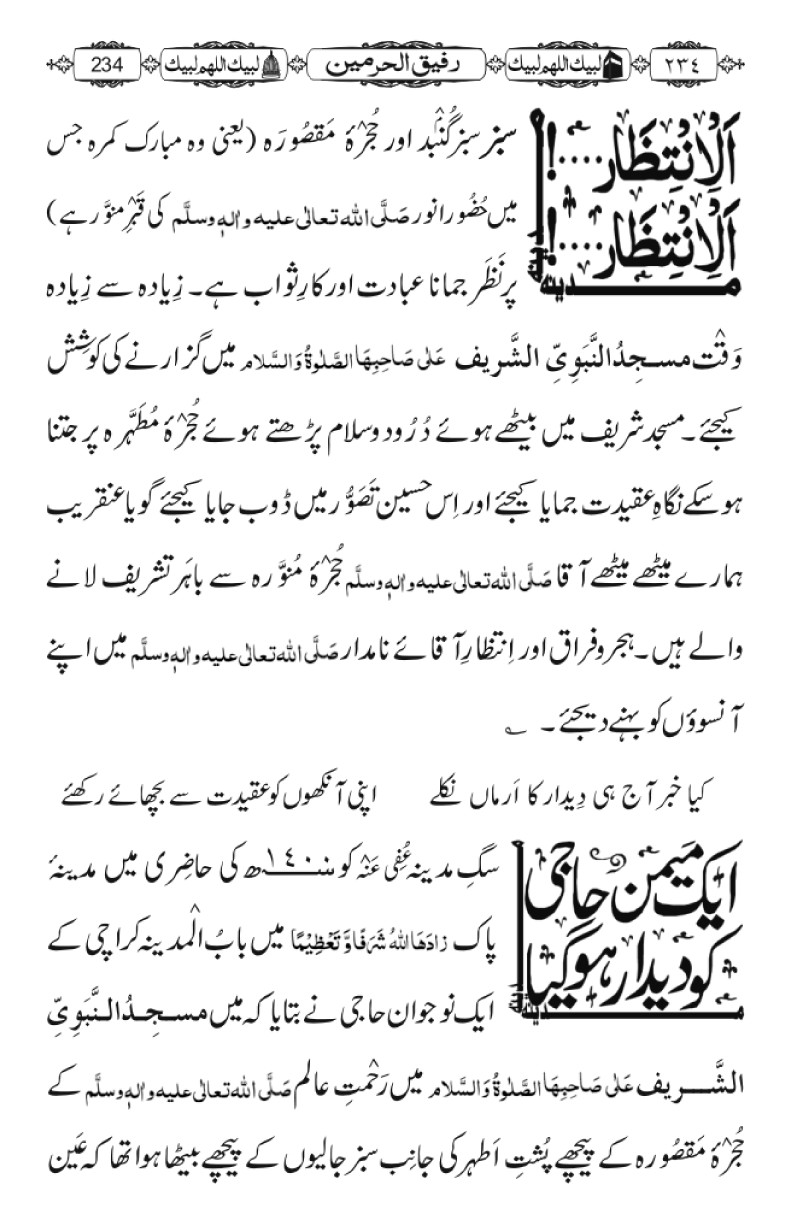 ٢٣٤ لبيك اللهم لبيك رفیق الحرمین لبيك اللهم لبيك 234
اَلْاِنْتِظَار....!
اَلْاِنْتِظَار....!
مدینہ
سبز سبز گُنبَد اور حُجْرَۂ مَقصُورَہ (یعنی وہ مبارک کمرہ جس
میں حُضُورِ انور صَلَّی اللہ تعالٰی علیہ واٰلہٖ وسلَّم کی قَبْرِ مُنَوَّر ہے)
پر نَظَر جمانا عبادت اور کارِ ثواب ہے۔ زِیادہ سے زِیادہ
وَقْت مسجِدُ النَّبَوِیِّ الشَّریف عَلٰی صَاحِبِهَا الصَّلٰوۃُ وَالسَّلَام میں گزارنے کی کوشِش
کیجئے۔ مسجد شریف میں بیٹھے ہوئے دُرُود وسلام پڑھتے ہوئے حُجْرَۂ مُطَہَّرہ پر جتنا
ہو سکے نگاہِ عقیدت جمایا کیجئے اور اِس حسین تَصَوُّر میں ڈوب جایا کیجئے گویا عنقریب
ہمارے میٹھے میٹھے آقا صَلَّی اللہ تعالٰی علیہ واٰلہٖ وسلَّم حُجْرَۂ مُنوَّرہ سے باہَر تشریف لانے
والے ہیں۔ ہجر و فراق اور اِنتظارِ آقائے نامدار صَلَّی اللہ تعالٰی علیہ واٰلہٖ وسلَّم میں اپنے
آنسوؤں کو بہنے دیجئے۔ ؎
کیا خبر آج ہی دِیدار کا اَرماں نکلے اپنی آنکھوں کو عقیدت سے بچھائے رکھئے
ایک میمن حاجی
کو دیدار ہو گیا
مدینہ
سگِ مدینہ عُفِیَ عَنْہ کو ١٤٠٠ھ کی حاضِری میں مدینۂ
پاک زادَهَا اللهُ شَرَفًاوَّ تَعْظِيْمًا میں بابُ الْمدینہ کراچی کے
ایک نوجوان حاجی نے بتایا کہ میں مسجِدُ النَّبَوِیِّ
الشَّریف عَلٰی صَاحِبِهَا الصَّلٰوۃُ وَالسَّلَام میں رَحْمتِ عالم صَلَّی اللہ تعالٰی علیہ واٰلہٖ وسلَّم کے
حُجْرَۂ مَقصُورہ کے پیچھے پُشتِ اَطہر کی جانِب سبز جالیوں کے پیچھے بیٹھا ہوا تھا کہ عَین